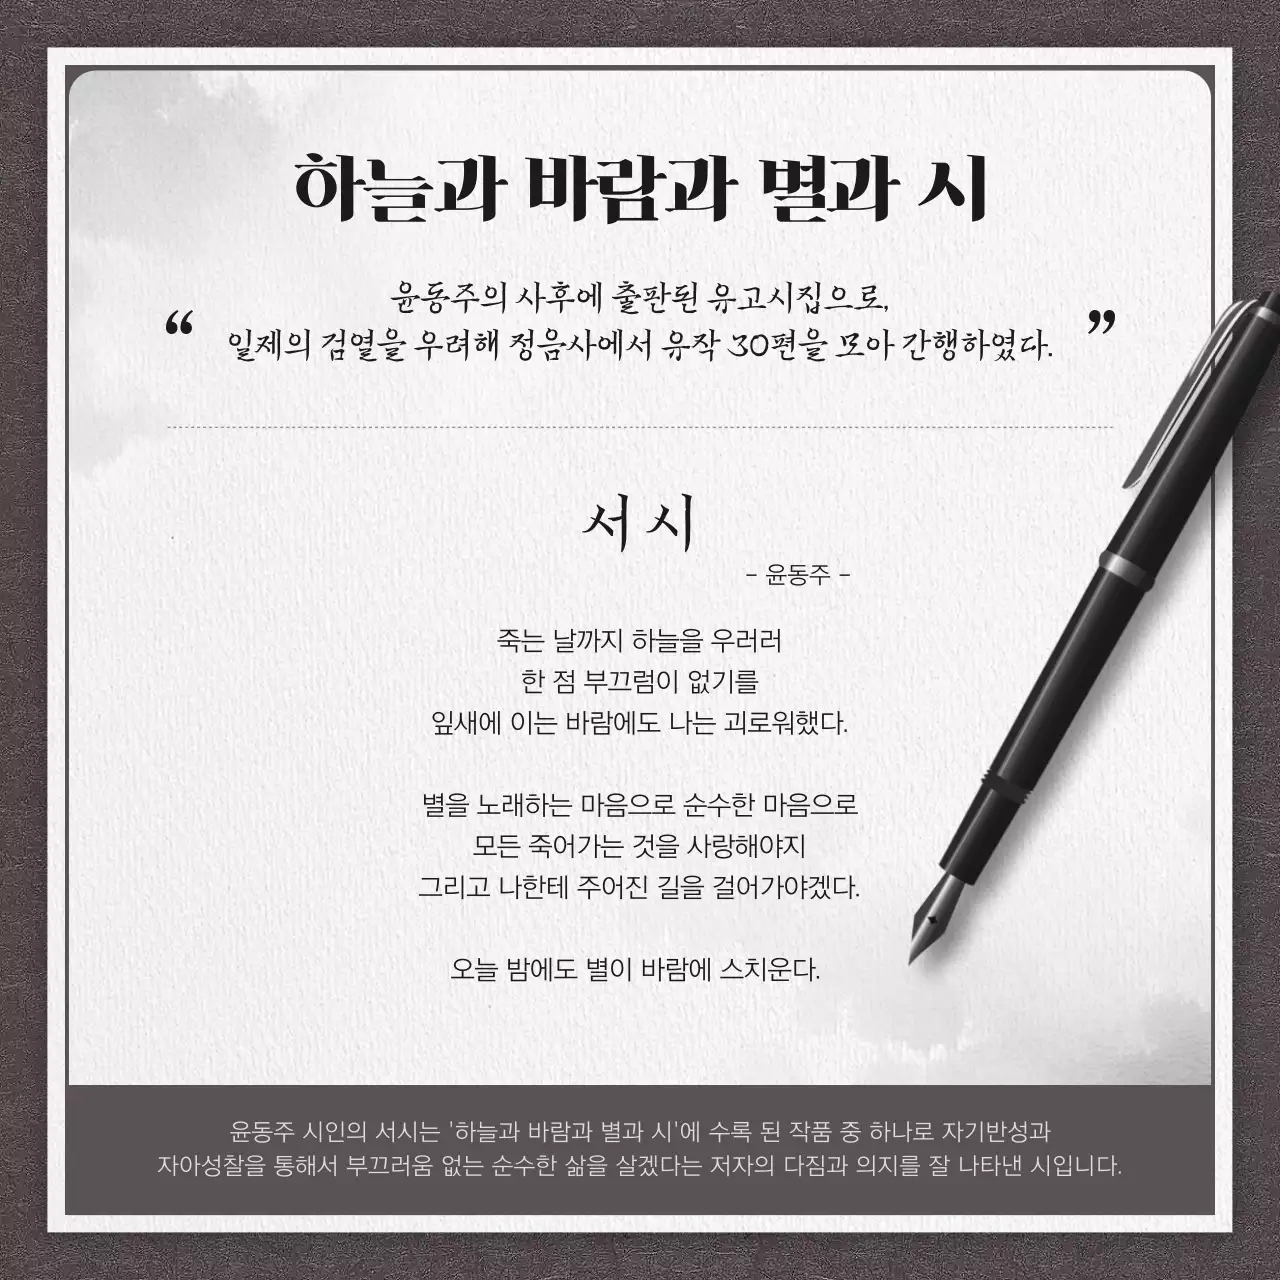 하늘과 바람과 별과 시
“ 윤동주의 사후에 출판된 유고시집으로,
일제의 검열을 우려해 정음사에서 유작 30편을 모아 간행하였다. ”
서시
- 윤동주 -
죽는 날까지 하늘을 우러러
한 점 부끄럼이 없기를
잎새에 이는 바람에도 나는 괴로워했다.
별을 노래하는 마음으로 순수한 마음으로
모든 죽어가는 것을 사랑해야지
그리고 나한테 주어진 길을 걸어가야겠다.
오늘 밤에도 별이 바람에 스치운다.
윤동주 시인의 서시는 '하늘과 바람과 별과 시'에 수록 된 작품 중 하나로 자기반성과
자아성찰을 통해서 부끄러움 없는 순수한 삶을 살겠다는 저자의 다짐과 의지를 잘 나타낸 시입니다.